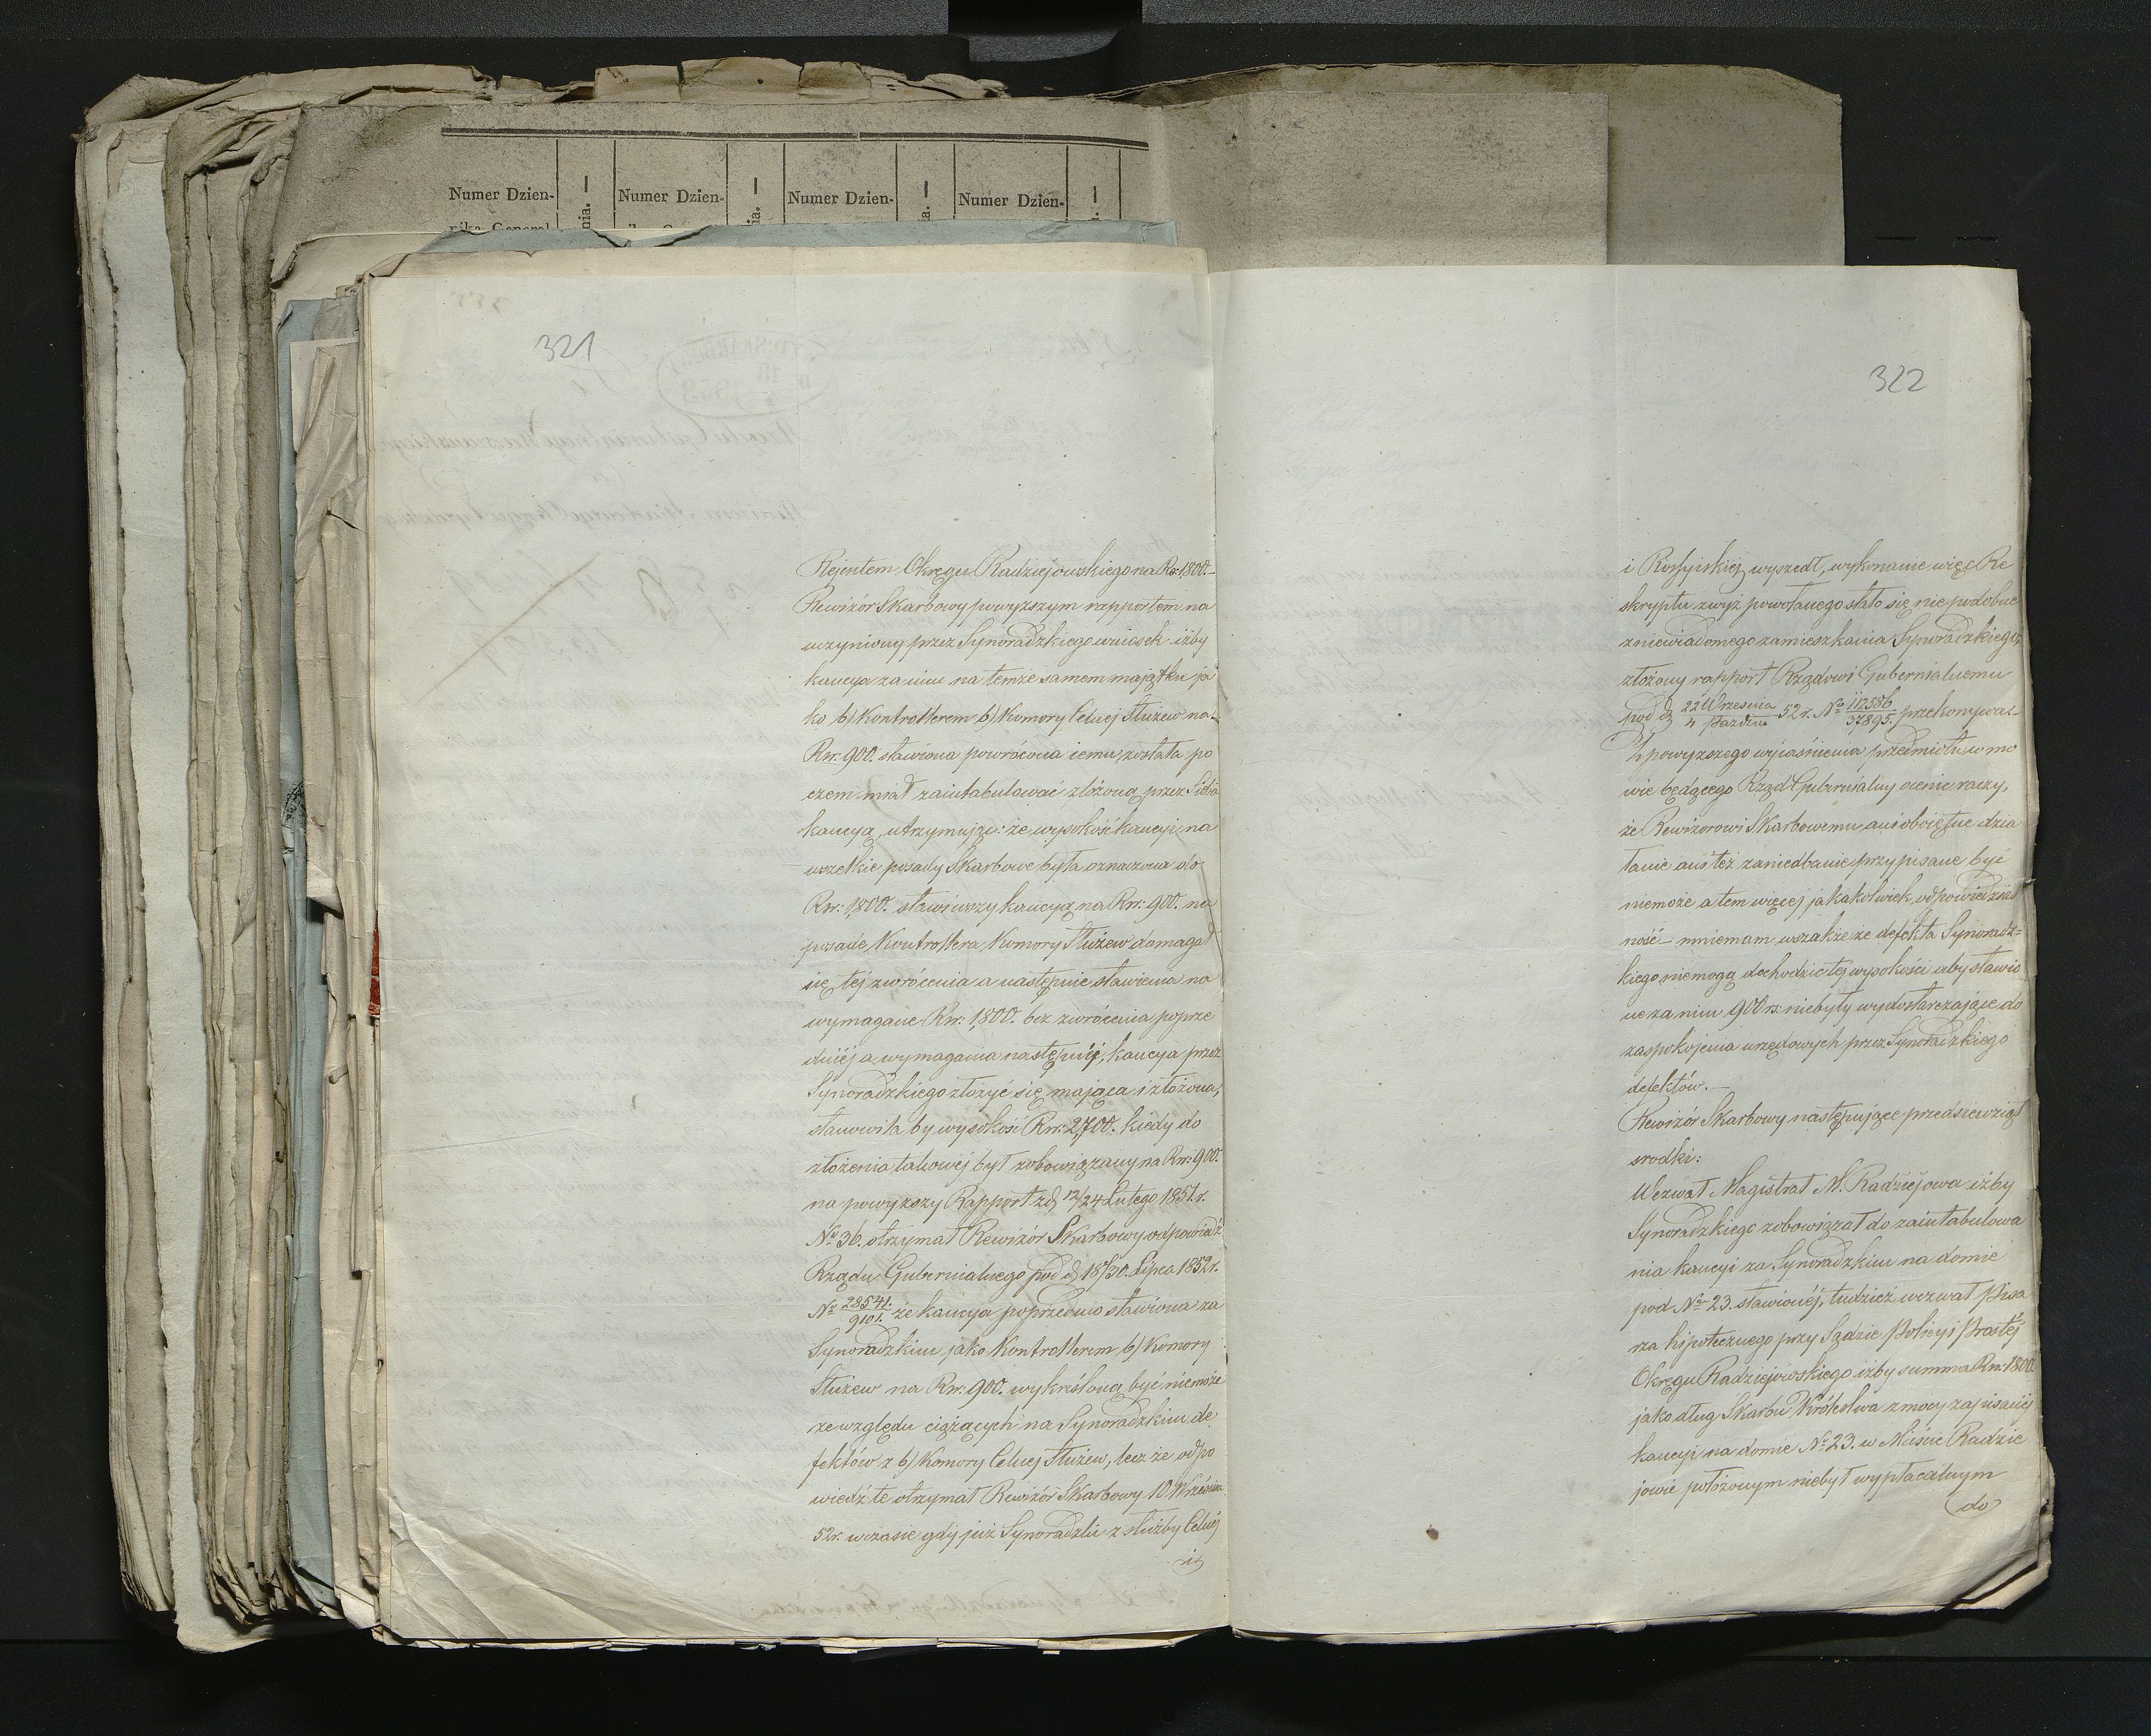 Numer Dzien- nia. Numer Dzien- ia. Numer Dzien- a. Numer Dzien-
321
Rejentem Okręgu Radziejowskiego na Rsr. 1800.
Rewizór Skarbowy powyższym rapportem na
uczyniony przez Synoradzkiego wniosek iżby
kaucya za nim na temże samem majątku ja
ko b) Kontrollerem b) Komory Celnej Służew na
Rsr. 900. stawiona powrócona jemu została po
czem miał zaintabulować złożoną przez Siebie
kaucyą, utrzymując: że wysokość kaucyi na
wszelkie posady Skarbowe była oznaczona do
Rsr: 1,800. stawiwszy kaucyą na Rsr: 900. na
posade Kontrollera Komory Służew domagał
się tej zwrócenia a następnie stawienia na
wymagane Rsr: 1,800. bez zwrócenia poprze
dniéj a wymagania następnéj, kaucya przez
Synoradzkiego złożyć się mająca i złożona,
stanowiła by wysokość Rsr: 2,700. kiedy do
złożenia takowéj był zobowiązany na Rsr: 900.
na powyższy Rapport z d) 12/24 Lutego 1851. r.
No 36. otrzymał Rewizór Skarbowy odpowiedź
Rządu Gubernialnego pod d) 18/30. Lipca 1852 r.
No 28541./9101. że kaucya poprzednio stawiona za
Synoradzkim jako Kontrollerem b) Komory
Służew na Rsr. 900. wykréśloną być niemoże
ze względu ciążących na Synoradzkim de
fektów z b) Komory Celnej Służew, lecz że odpo
wiedź te otrzymał Rewizór Skarbowy 10 Września
52 r. w czasie gdy już Synoradzki z służby Celnéj
i
322
i Rossyiskiéj wyszedł, wykonanie więc Re
skryptu zwyż powołanego stało się nie podobne
z niewiadomego zamieszkania Synoradzkiego,
złożony rapport Rządowi Gubernialnemu
pod d) 22 Wrzesnia/4 Paździer 52 r. No 112586/37895. przekonywa.
Z powyższego wyjaśnienia przedmiotu w mo
wie będącego Rząd Gubernialny ocenić raczy,
że Rewizorowi Skarbowemu, ani oboiętne dzia
łanie ani też zaniedbanie przypisane być
niemoże a tem więcej jakakolwiek odpowiedzial
ność mniemam wszakże że defekta Synoradz=
kiego niemogą dochodzić tej wysokości aby stawio
ne za nim 900 rs. niebyły wydostarczające do
zaspokojenia urzędowych przez Synoradzkiego
defektów.
Rewizór Skarbowy następujące przedsiewziął
srodki:
Wezwał Magistrat M. Radziejowa iżby
Synoradzkiego zobowiązał do zaintabulowa
nia kaucyi za Synoradzkim na domie
pod No 23. stawionéj, tudzież wezwał Pisa
rza hipotecznego przy Sądzie Policyi Prostéj
Okręgu Radziejowskiego iżby summa Rsr: 1800
jako dług Skarbu Królestwa z mocy zapisanéj
kaucyi na domie No 23. w Mieście Radzie
jowie położonym niebył wypłacalnym
do